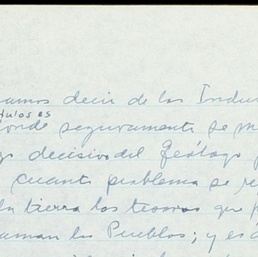 amos decir de las Indu
dulos es
donde seguramente se m
go decisivo del Geólogo
cuanto problema se re
la tierra los tesoros que
aman los Pueblos; y es